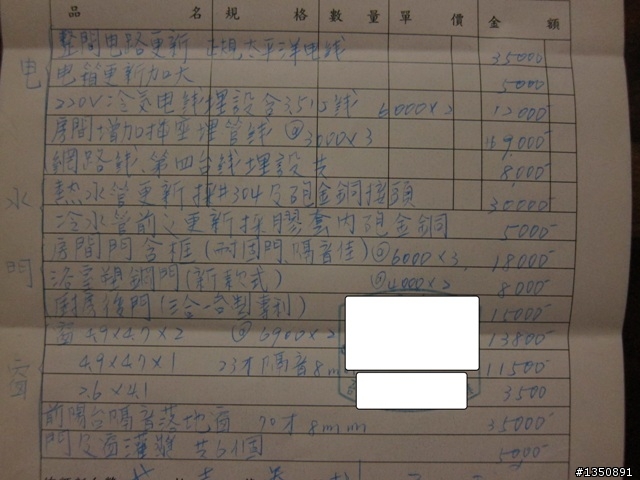 品名 規格 數量 單價 金額
整間电路更新 太平洋电线 35000
电箱更新加大 5000
220V冷氣电线埋設含 6000×2 12000
房間增加插座埋管线 @3000×3 9000
網路线、第四台线埋設共 8000
熱水管更新採#304及砲金銅接頭 30000
冷水管 更新採膠套內砲金銅 5000
房間門含框(耐固門.隔音佳) @6000×3 18000
浴室塑鋼門(新款式) @4000×2 8000
廚房後門(三合一 專利) 15000
窗 4.9×4.7×2 @6900×2 13800
4.9×4.7×1 23才隔音8m 11500
2.6×4.1 3500
前陽台隔音落地窗 70才 8mm 35000
門及窗灌 共 個 5000
电
水
門
窗
#1350891